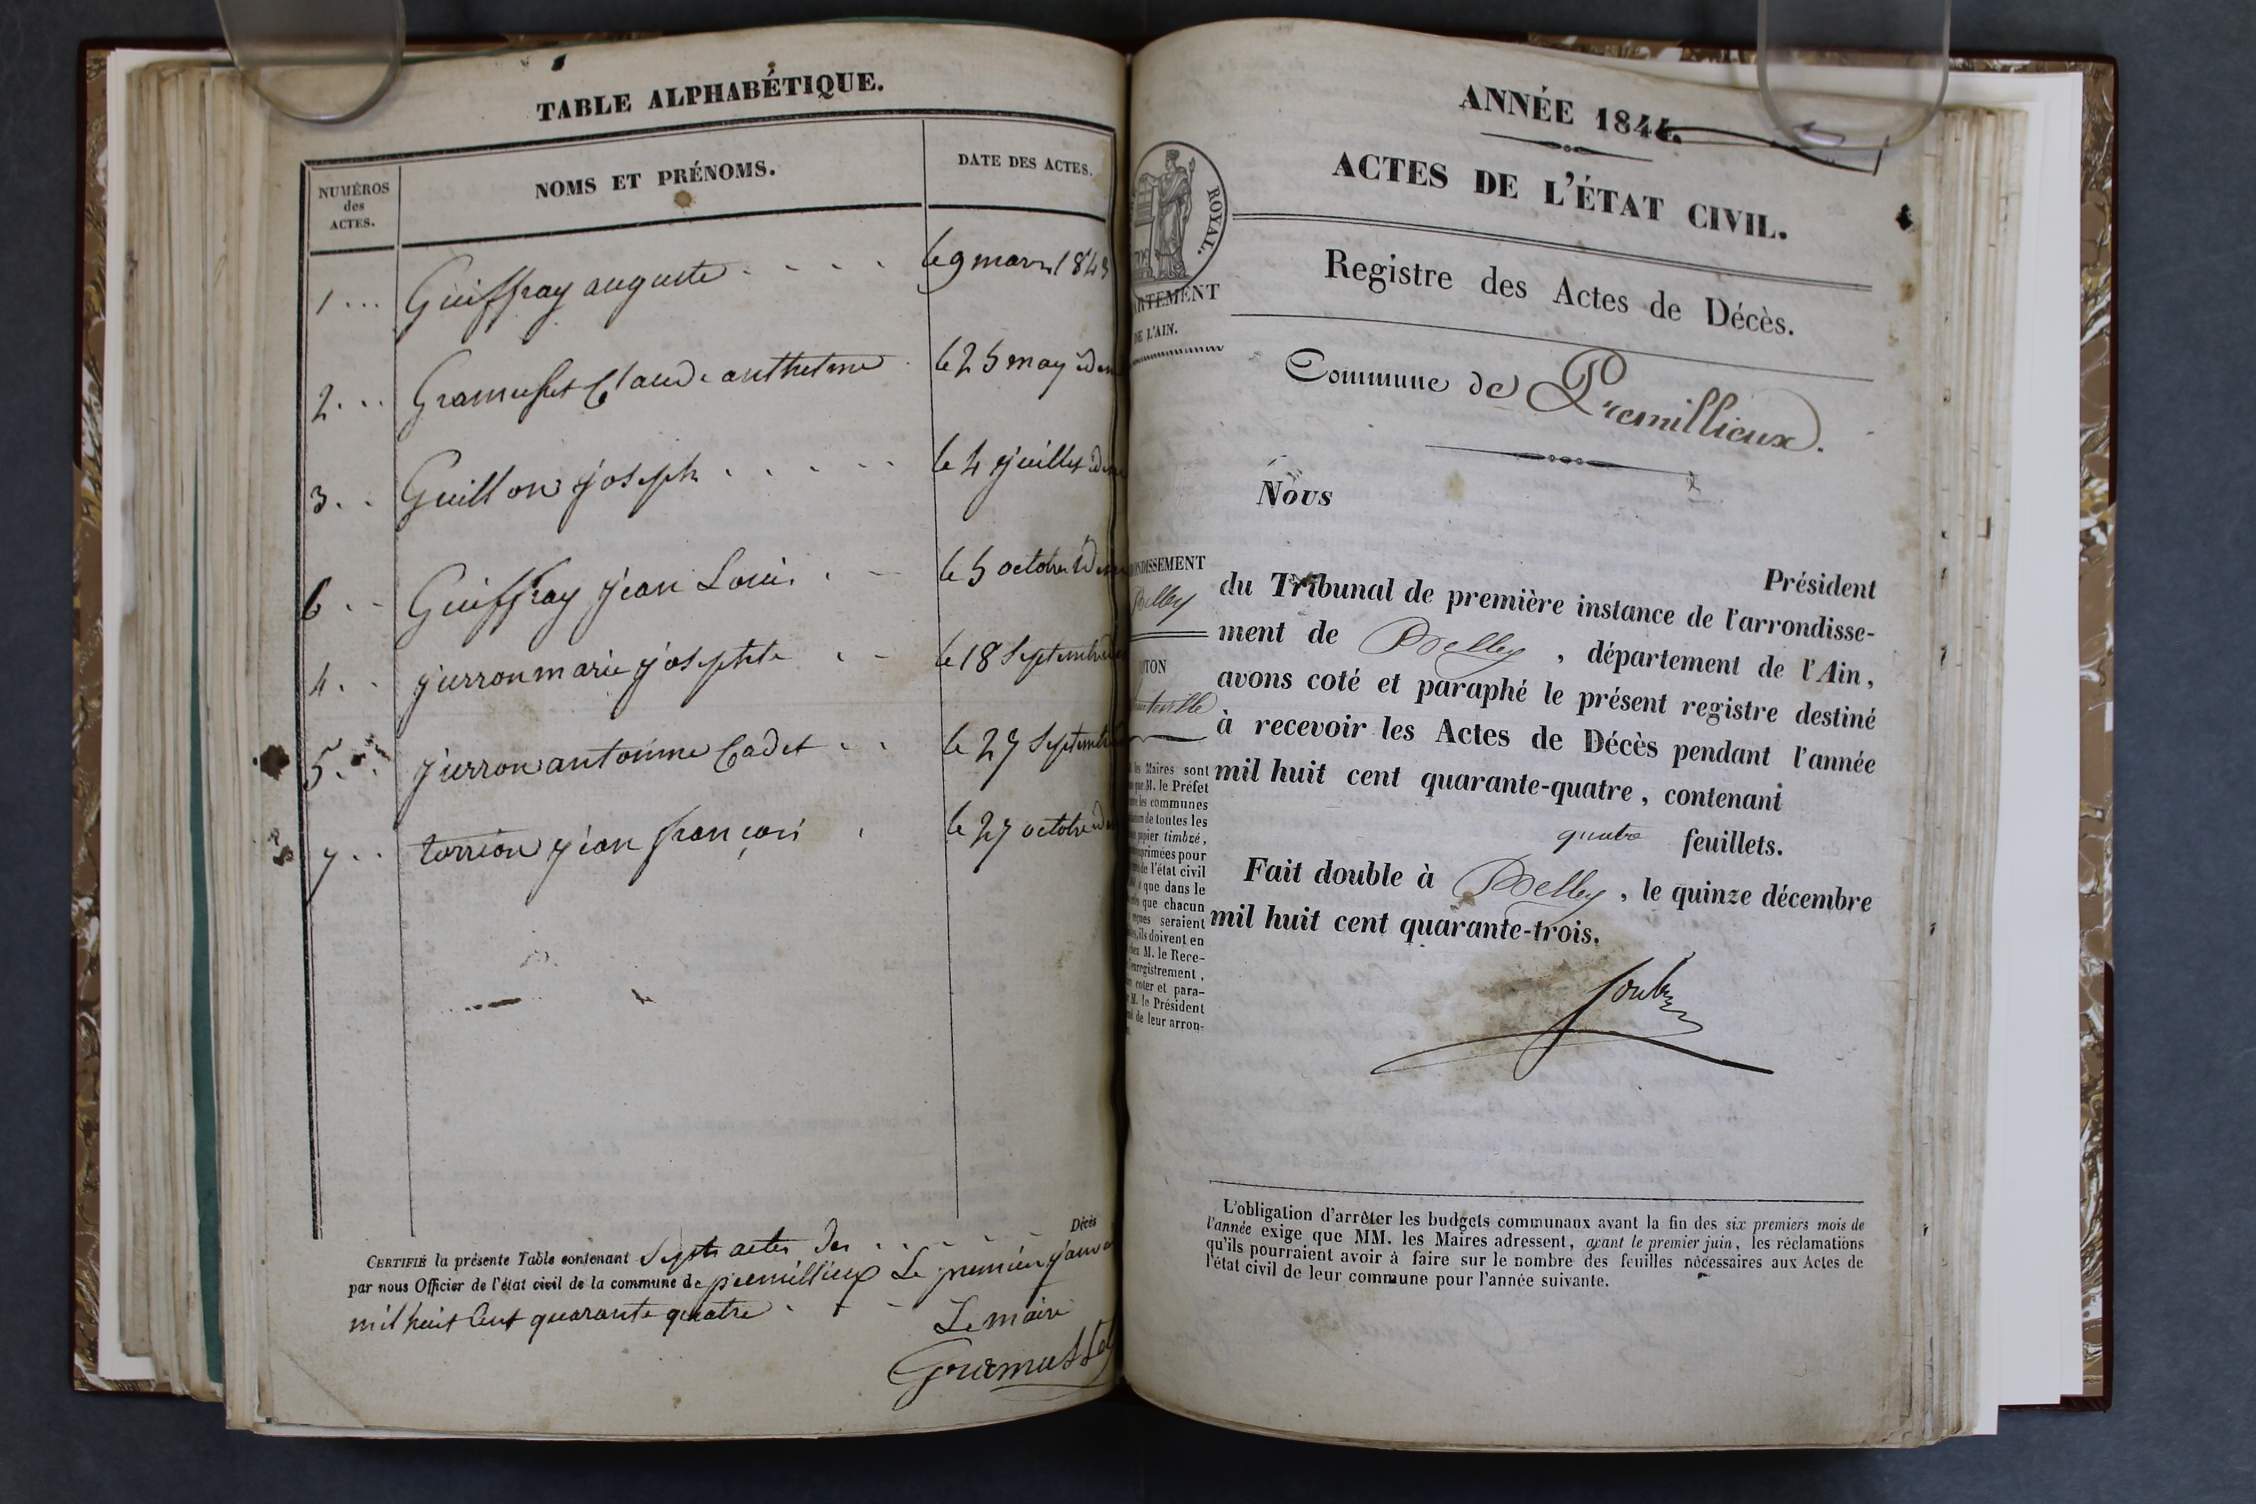 TABLE ALPHABÉTIQUE.
NUMÉROS
des
ACTES.
NOMS ET PRÉNOMS.
DATE DES ACTES.
1 ... Guiffray auguste . . . . le 9 mars 1843
2. .. Gramusset Claude anthelme . le 25 may idem
3. . Guillon joseph . . . . . le 4 juillet idem
6 . . Guiffray jean Louis . - le 5 octobre idem
4. . jurron marie josephte . - le 18 septembre
5. . . jurron antoinne Cadet . . le 27 septembre
7 . . torrion jean françois . le 27 octobre
CERTIFIÉ la présente Table contenant Sept actes des . . . . Décès
par nous Officier de l'état civil de la commune de premillieux Le premier janvier
mil huit Cent quarante quatre . - -
Le maire
Gramusset
ANNÉE 1844.
ACTES DE L'ÉTAT CIVIL.
ROYAL.
ARTEMENT
DE L'AIN.
Registre des Actes de Décès.
Commune de Premillieux.
Nous
Président
du Tribunal de première instance de l'arrondisse-
ment de Belley, département de l'Ain,
avons coté et paraphé le présent registre destiné
à recevoir les Actes de Décès pendant l'année
mil huit cent quarante-quatre, contenant
quatre feuillets.
Fait double à Belley, le quinze décembre
mil huit cent quarante-trois.
ONDISSEMENT
Belley
NTON
les Maires sont
que M. le Préfet
les communes
de toutes les
papier timbré,
primées pour
de l'état civil
que dans le
que chacun
seraient
ils doivent en
M. le Rece-
enregistrement,
coter et para-
M. le Président
de leur arron-
L'obligation d'arrêter les budgets communaux avant la fin des six premiers mois de
l'année exige que MM. les Maires adressent, avant le premier juin, les réclamations
qu'ils pourraient avoir à faire sur le nombre des feuilles nécessaires aux Actes de
l'état civil de leur commune pour l'année suivante.